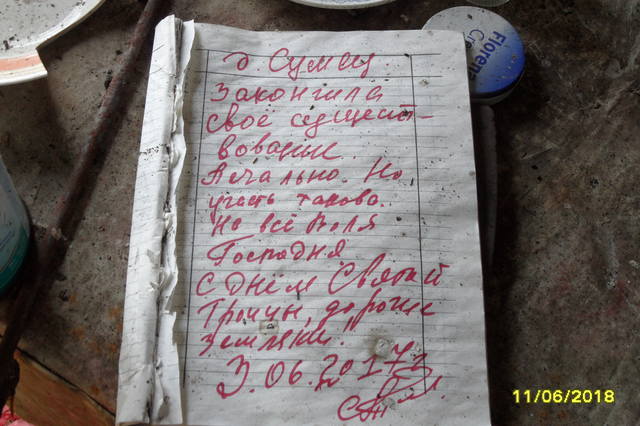 д. Сумец.
Закончила
своё сущест-
вование.
Печально. Но
участь такова.
На всё Воля
Господня.
С Днём Святой
Троицы, дорогие
земляки.
3.06.2017г.
Florena
Cre
11/06/2018